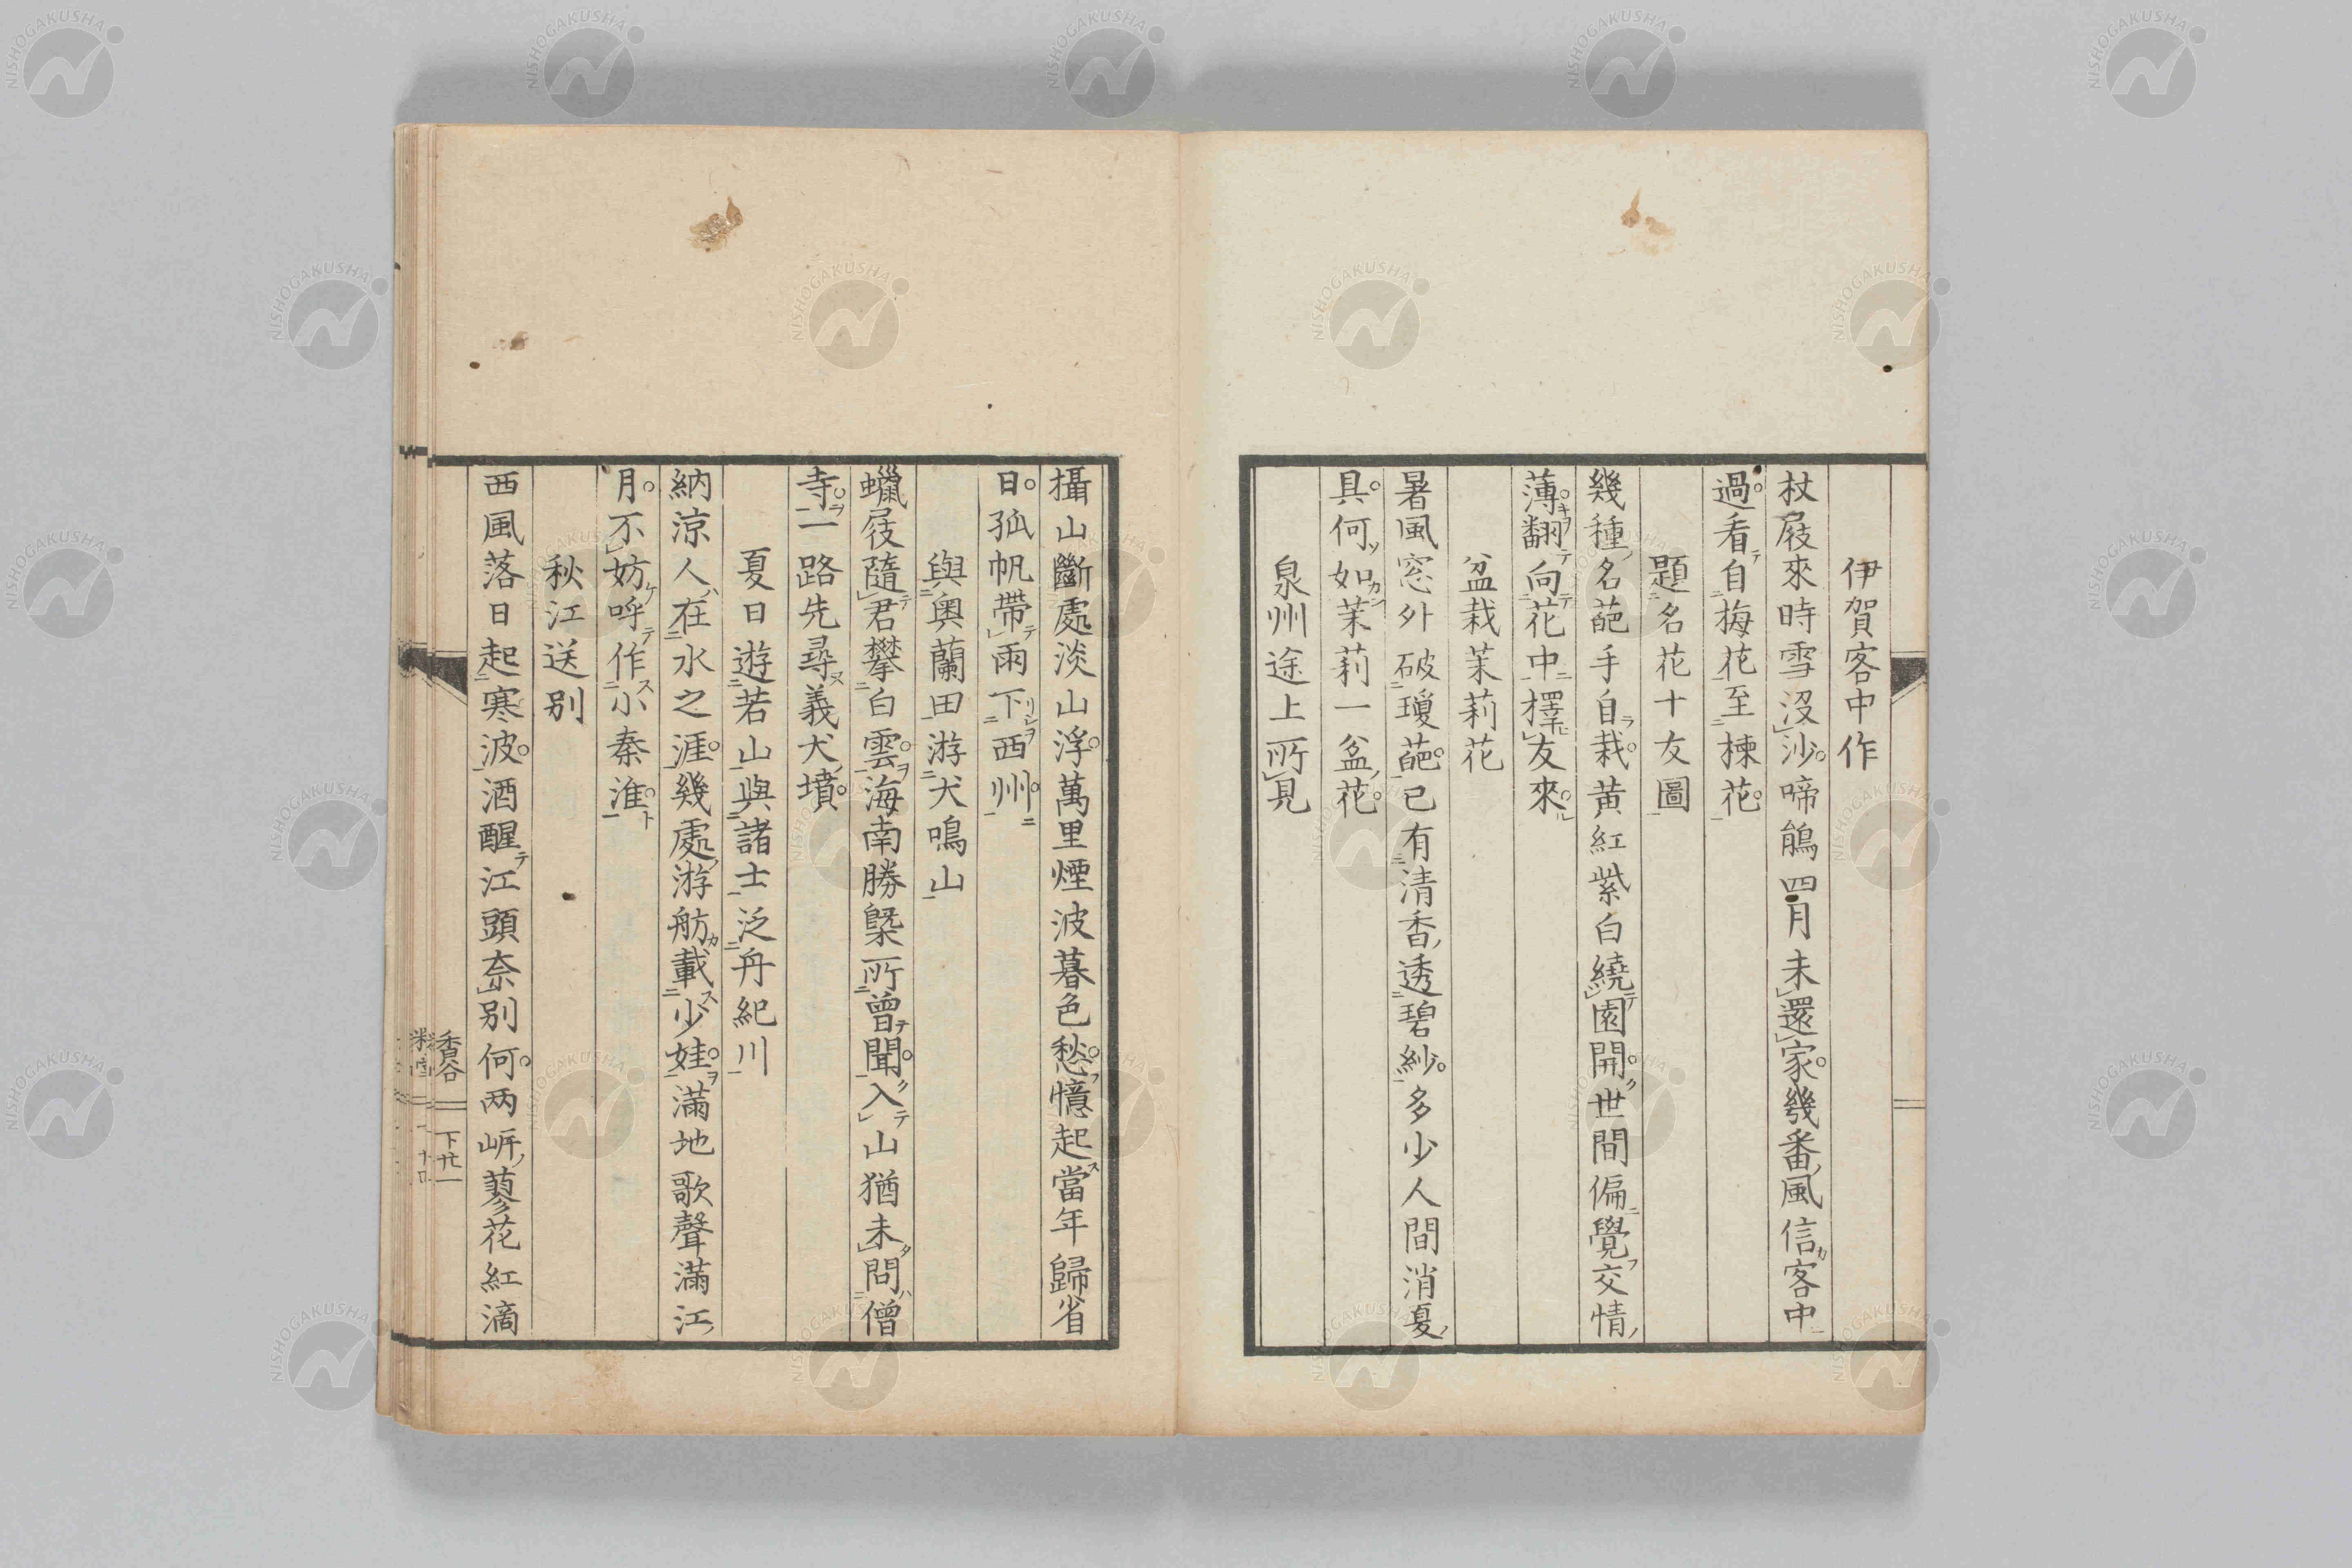 伊賀客中作
杖屐來時雪沒沙啼鵑四月未還家幾番風信客中
過看自梅花至楝花
題名花十友圖
幾種名葩手自栽黃紅紫白繞園開世間偏覺交情
薄翻向花中擇友來
盆栽茉莉花
暑風窓外破瓊葩已有清香透碧紗多少人間消夏
具何如茉莉一盆花
泉州途上所見
攝山斷處淡山浮萬里煙波暮色愁憶起當年歸省
日孤帆帶雨下西州
與奧蘭田游犬鳴山
蠟屐隨君攀白雲海南勝槩所曾聞入山猶未問僧
寺一路先尋義犬墳
夏日遊若山與諸士泛舟紀川
納涼人在水之涯幾處游舫載少娃滿地歌聲滿江
月不妨呼作小秦淮
秋江送別
西風落日起寒波酒醒江頭奈別何两岍蓼花紅滴
香谷
下廿一
NISHOGAKUSHA